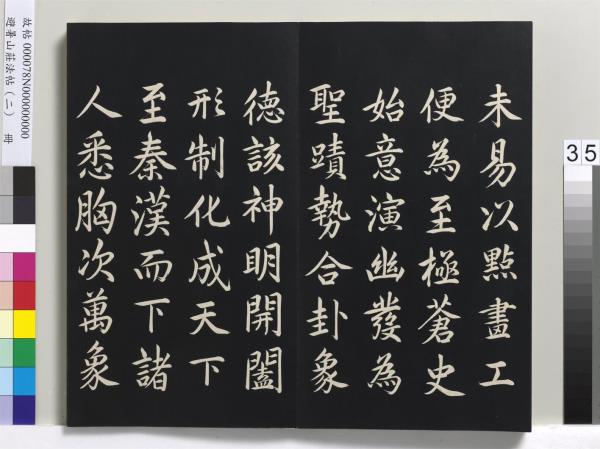 未易以點畫工
便為至極蒼史
始意演幽發為
聖蹟勢合卦象
德該神明開闔
形制化成天下
至秦漢而下諸
人悉胸次萬象
故帖 000078N000000000
避暑山莊法帖(二) 冊
35